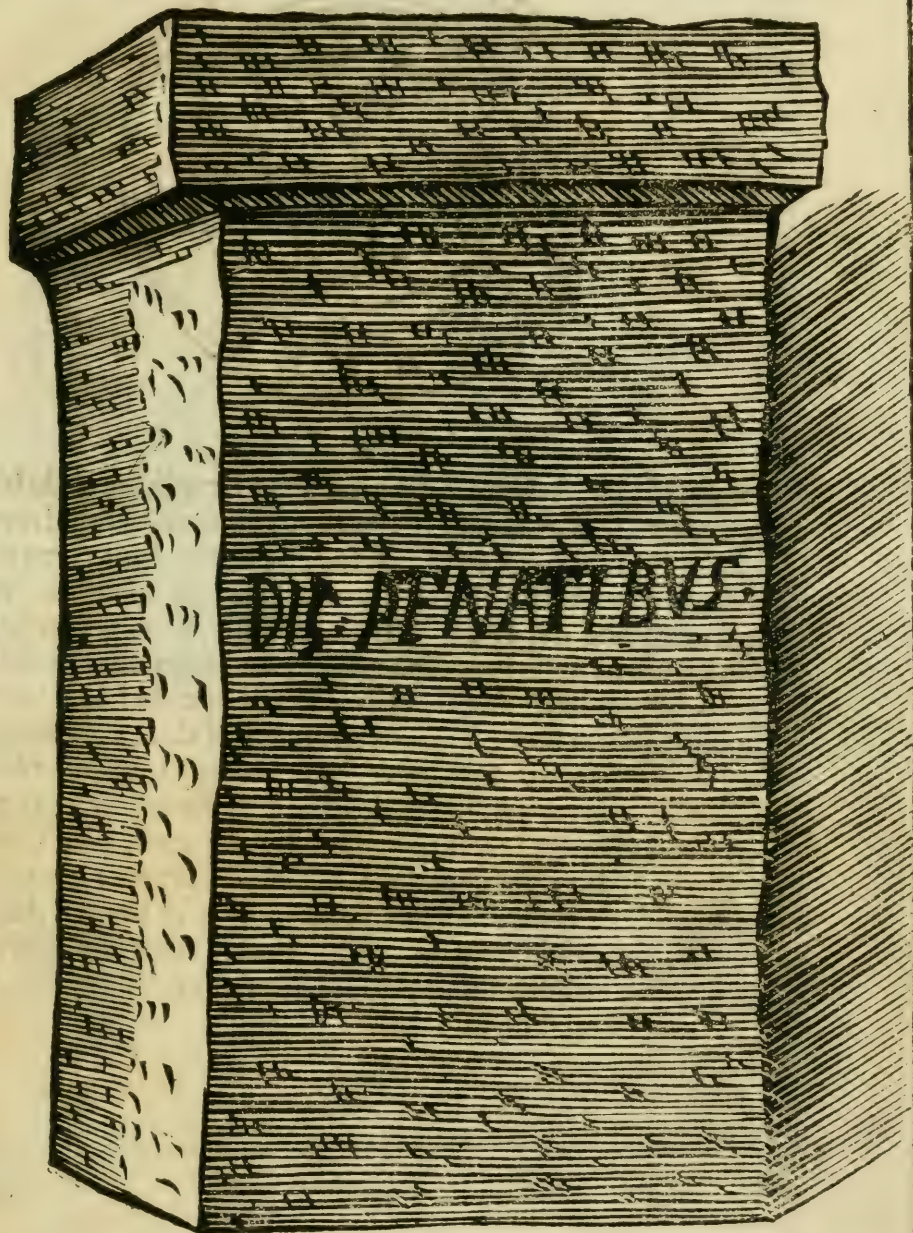 DIS. PENATIBVS.